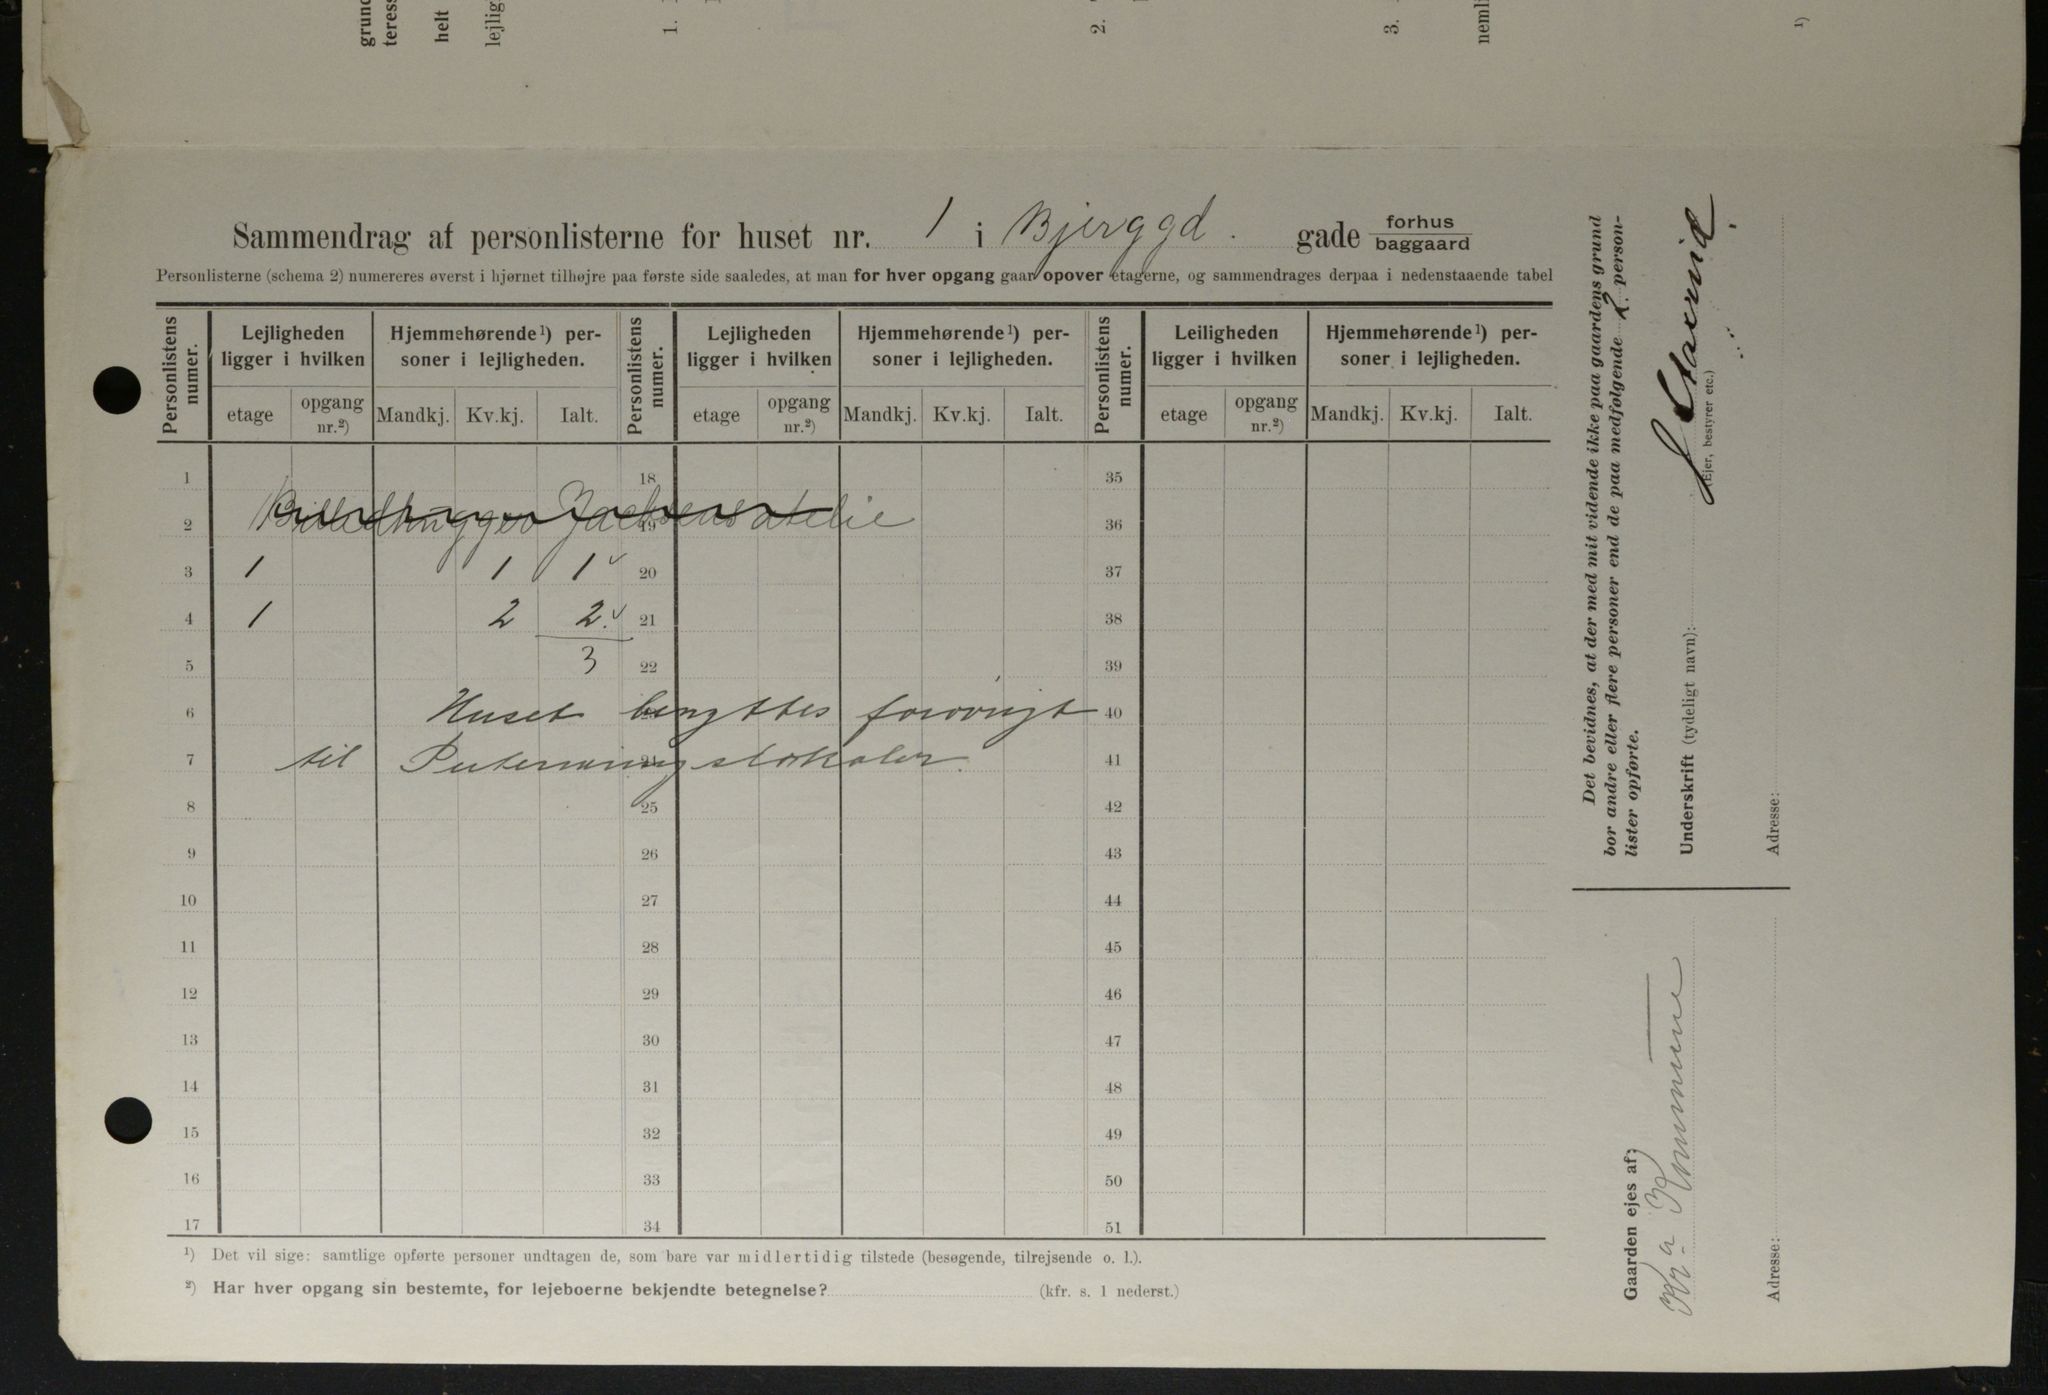 grund
teress
helt
lejlig
1.
2.
3.
nemli
1)
Sammendrag af personlisterne for huset nr. 1 i Bjerggd. gade forhus
baggaard
Personlisterne (schema 2) numereres øverst i hjørnet tilhøjre paa første side saaledes, at man for hver opgang gaar opover etagerne, og sammendrages derpaa i nedenstaaende tabel
Personlistens numer. Lejligheden ligger i hvilken Hjemmehørende¹) personer i lejligheden. Personlistens numer. Lejligheden ligger i hvilken Hjemmehørende¹) personer i lejligheden. Personlistens numer. Leiligheden ligger i hvilken Hjemmehørende¹) personer i lejligheden.
etage opgang nr.²) Mandkj. Kv.kj. Ialt. etage opgang nr.²) Mandkj. Kv.kj. Ialt. etage opgang nr.²) Mandkj. Kv.kj. Ialt.
1 18 35
2 Billedhugger atelie 19 36
3 1 1 1 20 37
4 1 2 2. 21 38
5 3 22 39
6 Huset benyttes forøvrigt 40
7 til 41
8 25 42
9 26 43
10 27 44
11 28 45
12 29 46
13 30 47
14 31 48
15 32 49
16 33 50
17 34 51
¹) Det vil sige: samtlige opførte personer undtagen de, som bare var midlertidig tilstede (besøgende, tilrejsende o. l.).
²) Har hver opgang sin bestemte, for lejeboerne bekjendte betegnelse? (kfr. s. 1 nederst.)
Det bevidnes, at der med mit vidende ikke paa gaardens grund
bor andre eller flere personer end de paa medfølgende 2. person-
lister opførte.
Underskrift (tydeligt navn):
(Ejer, bestyrer etc.)
Adresse:
Gaarden ejes af:
Kr.a Kommune
Adresse: